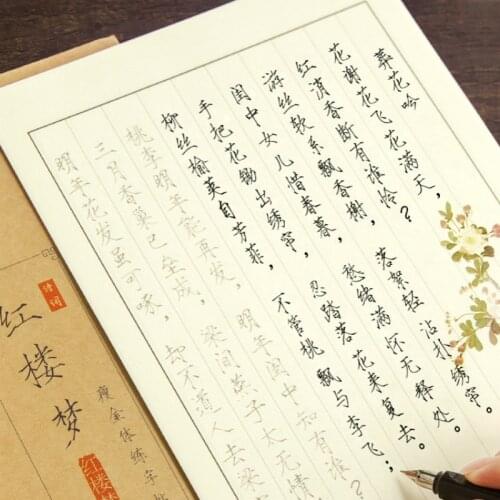 葬花吟
花谢花飞花满天，
红消香断有谁怜？
游丝软系飘香榭，落絮轻沾扑绣帘。
闺中女儿惜春暮，愁绪满怀无释处。
手把花锄出绣帘，忍踏落花来复去；
柳丝榆荚自芳菲，不管桃飘与李飞；
桃李明年能再发，明年闺中知有谁？
三月香巢已垒成，梁间燕子太无情
明年花发虽可啄，却不道人去梁
诗词
红楼梦
瘦金体练字帖
红楼